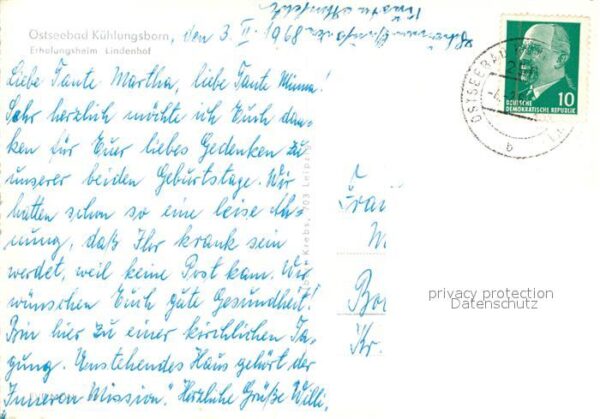 Ostseebad Kühlungsborn, den 3. II. 1968
Erholungsheim Lindenhof
Liebe Tante Martha, liebe Tante Minna!
Sehr herzlich möchte ich Euch dan-
ken für Euer liebes Gedenken zu
unserer beiden Geburtstage. Wir
hatten schon so eine leise Ah-
nung, daß Ihr krank sein
werdet, weil keine Post kam. Wir
wünschen Euch gute Gesundheit!
Bin hier zu einer kirchlichen Ta-
gung. Umstehendes Haus gehört der
"Inneren Mission". Herzliche Grüße Willi,
Krebs, 703 Leipzig
OSTSEEBAD
DEUTSCHE
DEMOKRATISCHE REPUBLIK
10
b
Frau
M
Bor
Kr.
privacy protection
Datenschutz